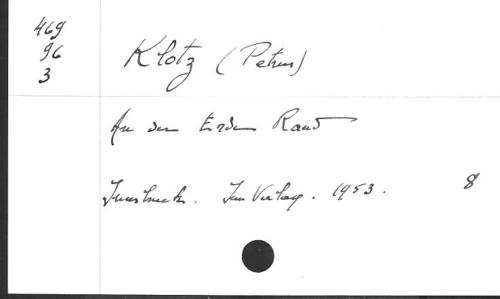 469
96
3
Klotz (Petrus)
An der Erden Rand
Innsbruck. Inn Verlag. 1953. 8